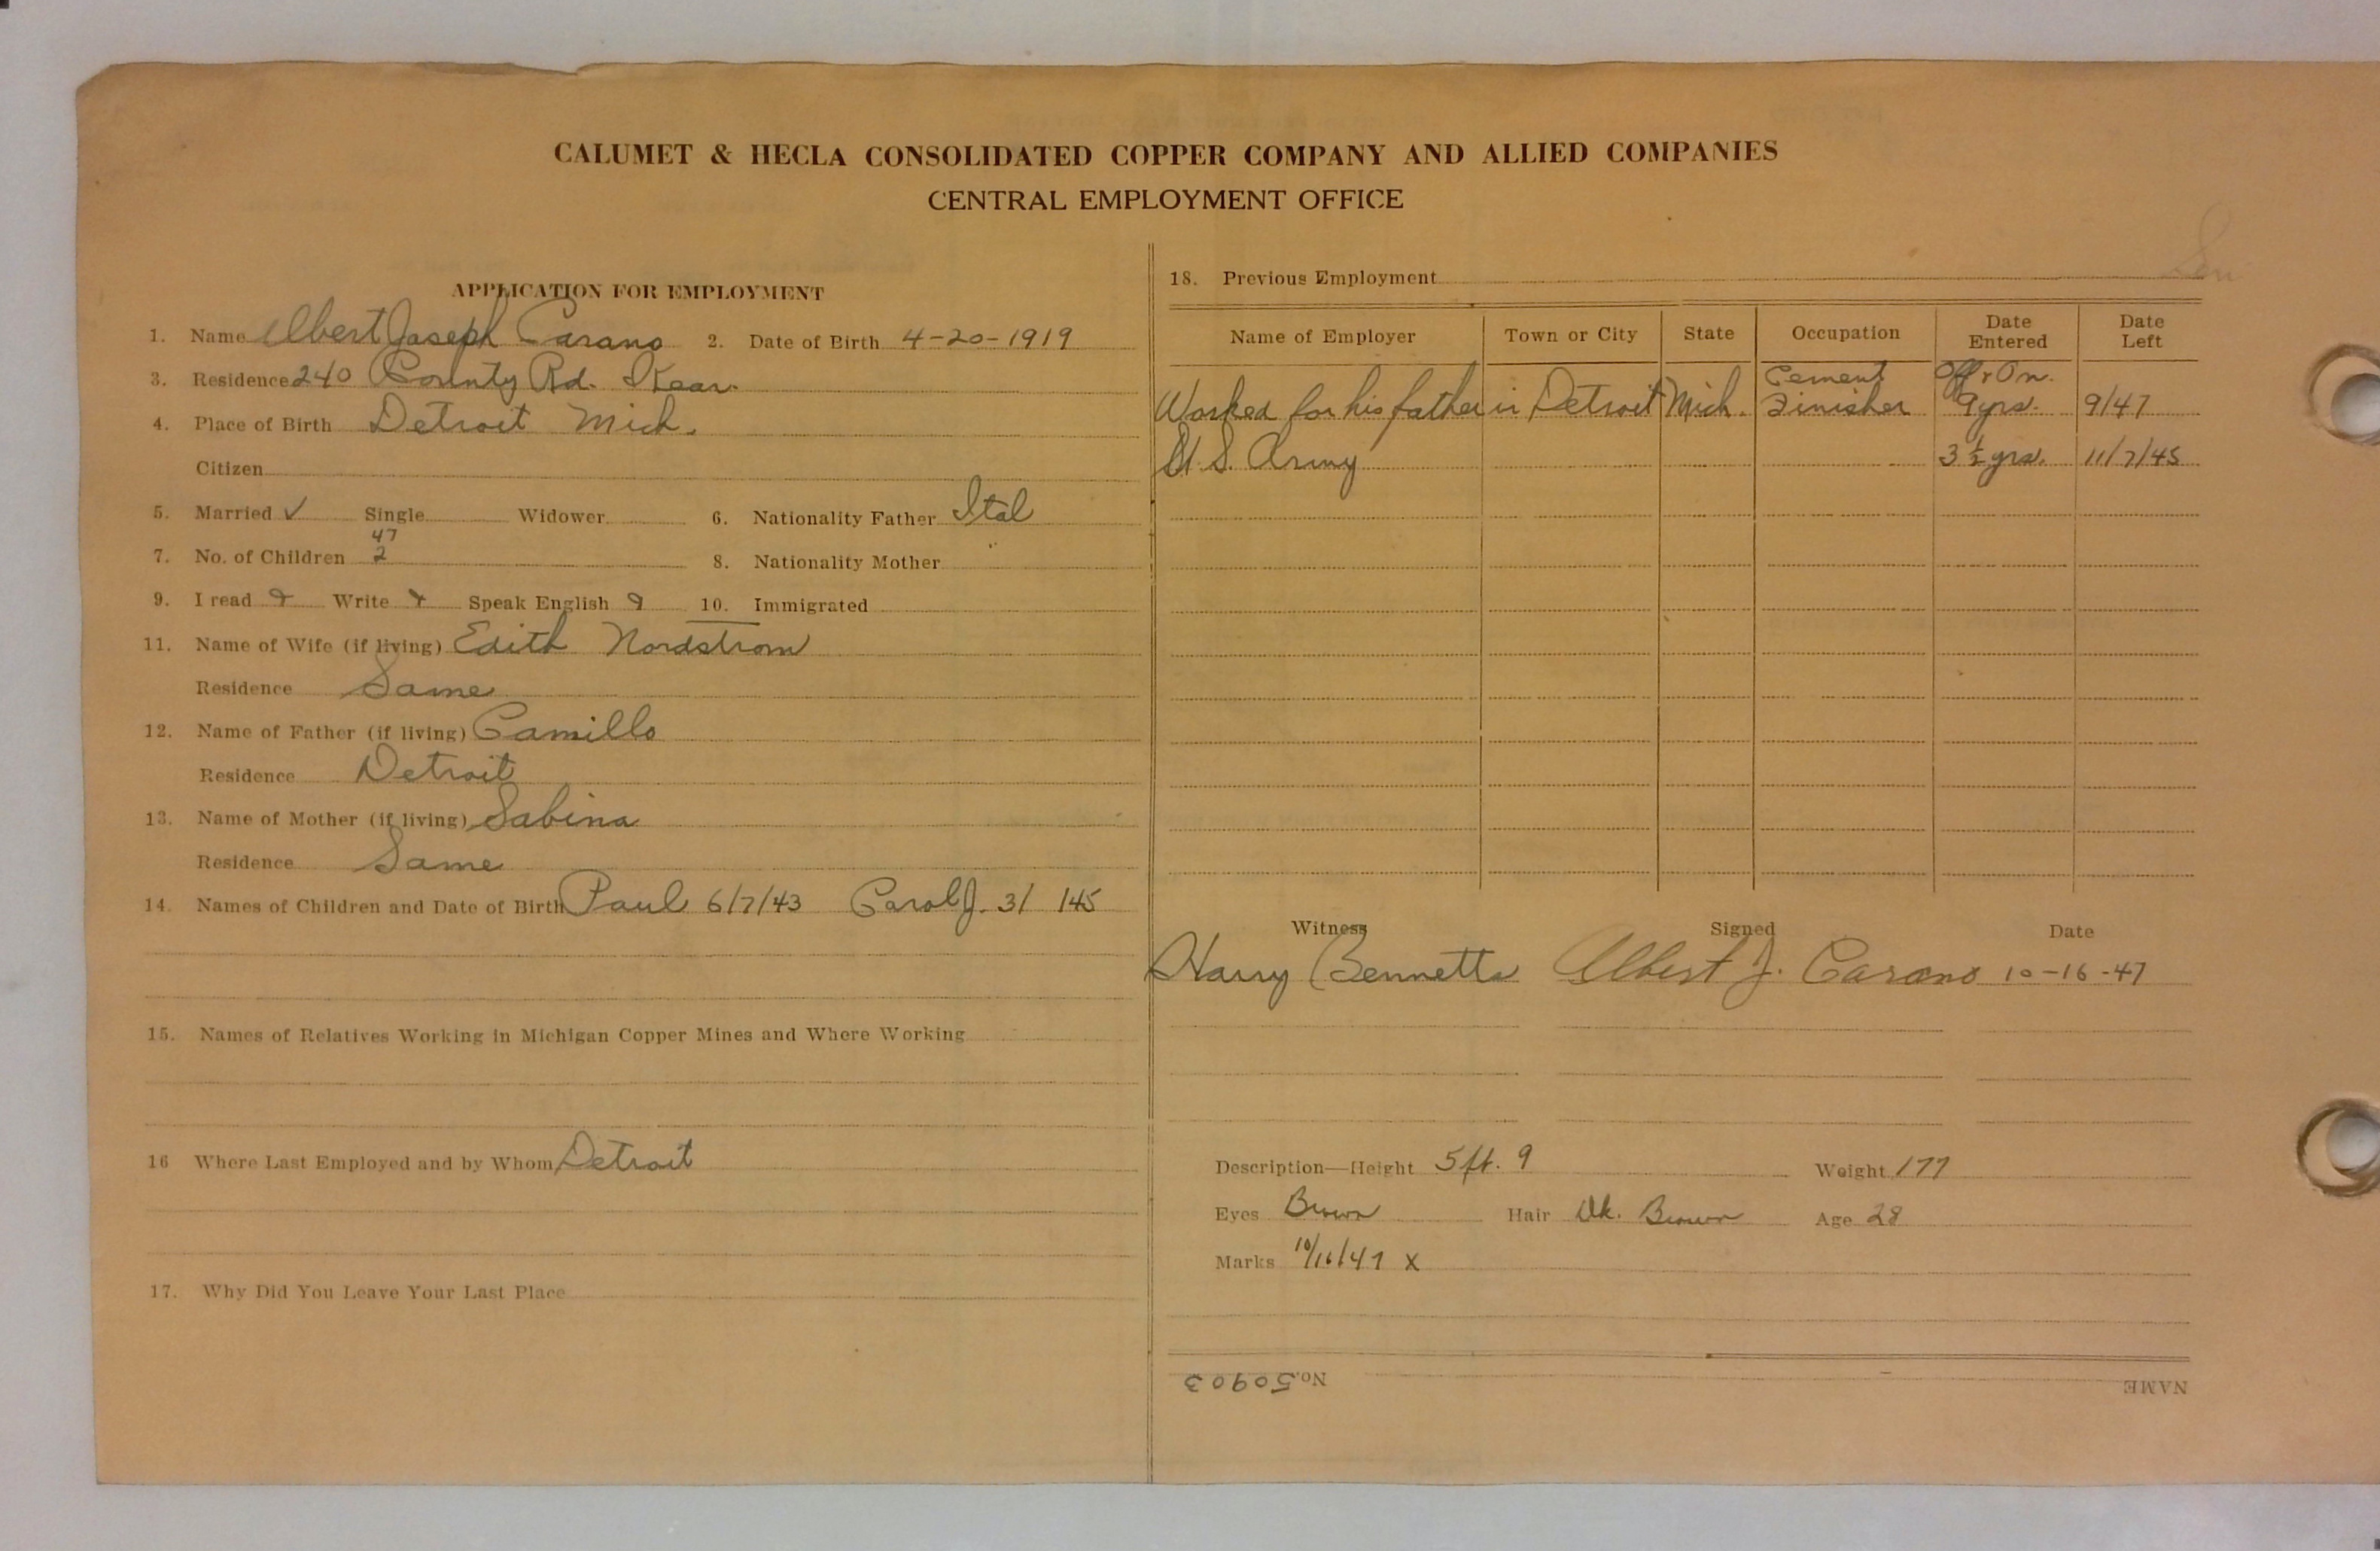 CALUMET & HECLA CONSOLIDATED COPPER COMPANY AND ALLIED COMPANIES
CENTRAL EMPLOYMENT OFFICE
APPLICATION FOR EMPLOYMENT
1. Name Albert Joseph Carano 2. Date of Birth 4-20-1919
3. Residence 240 County Rd.
4. Place of Birth Detroit Mich.
Citizen
5. Married ✓ Single Widower 6. Nationality Father Ital
47
7. No. of Children 2 8. Nationality Mother "
9. I read Write Speak English 10. Immigrated
11. Name of Wife (if living) Edith Nordstrom
Residence Same
12. Name of Father (if living) Camillo
Residence Detroit
13. Name of Mother (if living) Sabina
Residence Same
14. Names of Children and Date of Birth Paul 6/7/43 Carol J. 3/ /45
15. Names of Relatives Working in Michigan Copper Mines and Where Working
16 Where Last Employed and by Whom Detroit
17. Why Did You Leave Your Last Place
18. Previous Employment
Name of Employer Town or City State Occupation Date Entered Date Left
Cement Off & On.
Worked for his father in Detroit Mich. Finisher 9 yrs. 9/47
U.S. Army 3 1/2 yrs. 11/7/45
Witness Signed Date
Harry Bennetts Albert J. Carano 10-16-47
Description—Height 5 ft. 9 Weight 177
Eyes Brown Hair Dk. Brown Age 28
Marks 10/16/47 x
No. 50903 NAME